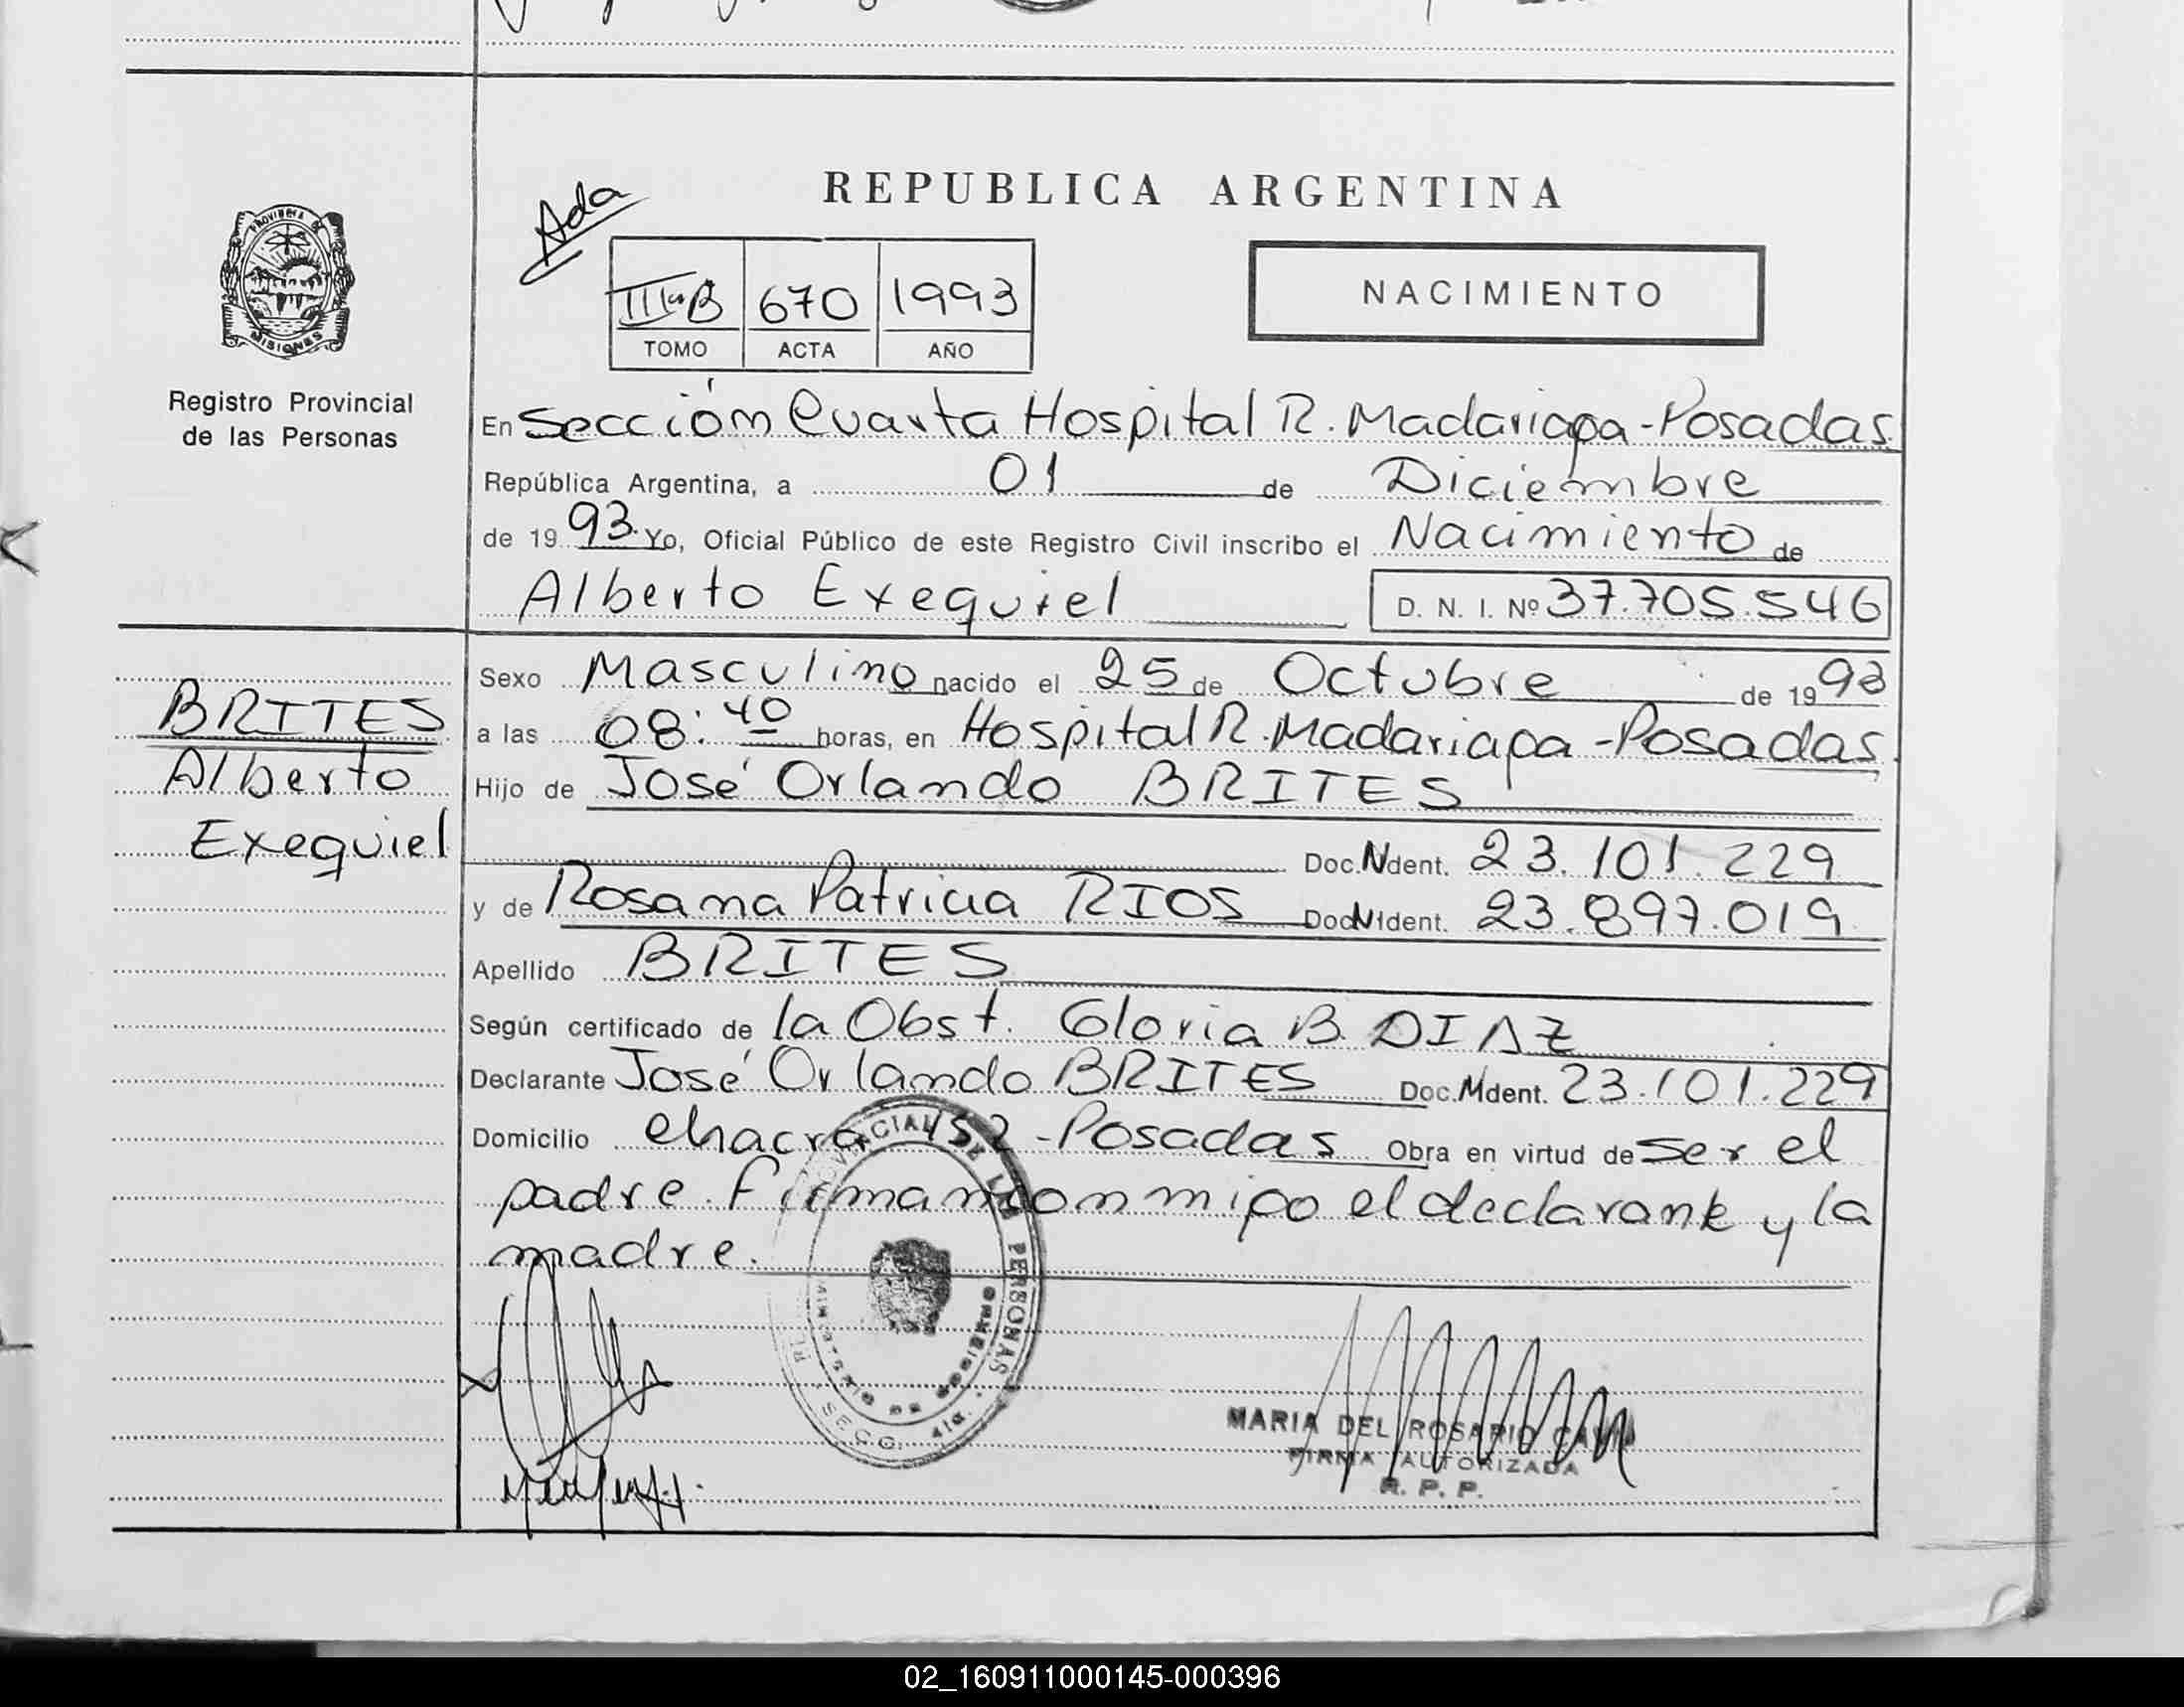 REPUBLICA ARGENTINA
Ada
IIIº B 670 1993
TOMO ACTA AÑO
NACIMIENTO
PROVINCIA DE
MISIONES
Registro Provincial
de las Personas
En Sección Cuarta Hospital R. Madariaga - Posadas
República Argentina, a 01 de Diciembre
de 1993. Yo, Oficial Público de este Registro Civil inscribo el Nacimiento de
Alberto Exequiel D. N. I. Nº 37.705.546
BRITES
Alberto
Exequiel
Sexo Masculino nacido el 25 de Octubre de 1993
a las 08:40 horas, en Hospital R. Madariaga - Posadas
Hijo de José Orlando BRITES
Doc. Ident. 23.101.229
y de Rosana Patricia RIOS Doc. Ident. 23.897.019
Apellido BRITES
Según certificado de la Obst. Gloria B. DIAZ
Declarante José Orlando BRITES Doc. Ident. 23.101.229
Domicilio chacra 152 - Posadas Obra en virtud de ser el
padre. Firman conmigo el declarante y la
madre.
PROVINCIAL DE LAS PERSONAS
MINISTERIO DE GOBIERNO
SECC. 4ta.
MARIA DEL ROSARIO
FIRMA AUTORIZADA
R. P. P.
02_160911000145-000396